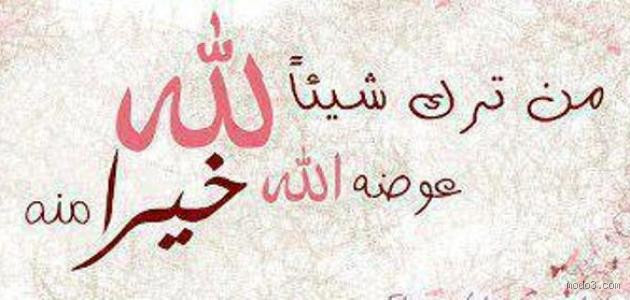 من ترك شيئاً لله
عوضه الله خيرا منه
modo3.com